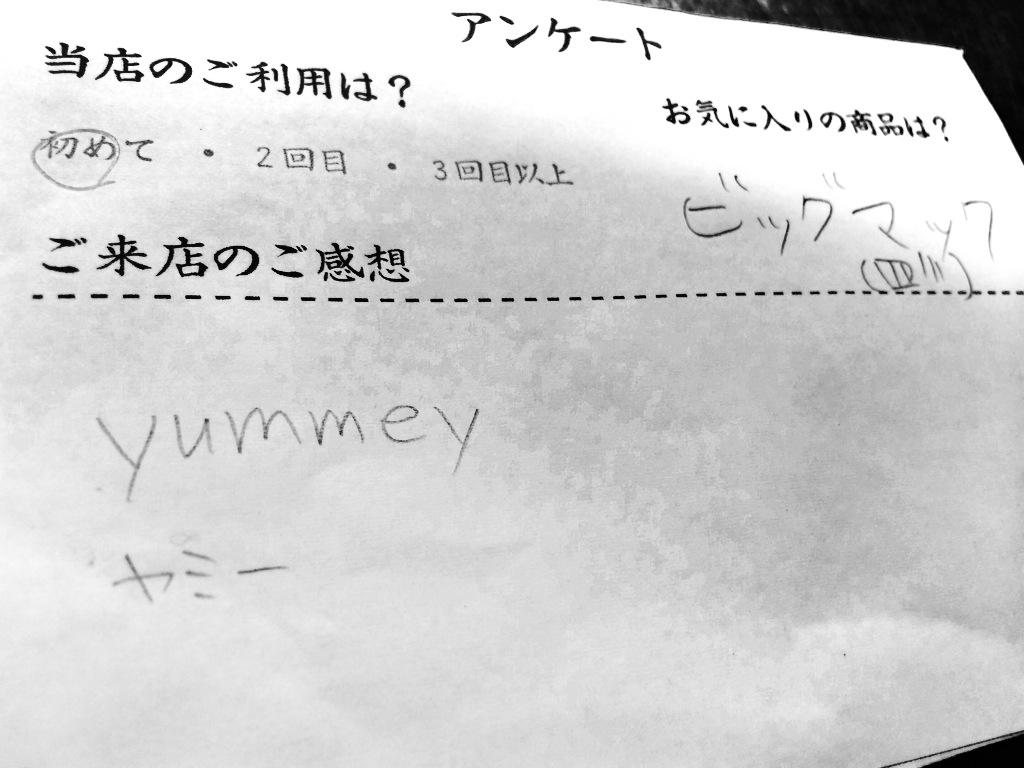 アンケート
当店のご利用は？
初めて ・ 2回目 ・ 3回目以上
お気に入りの商品は？
ビッグマック
ご来店のご感想
yummey
ヤミー